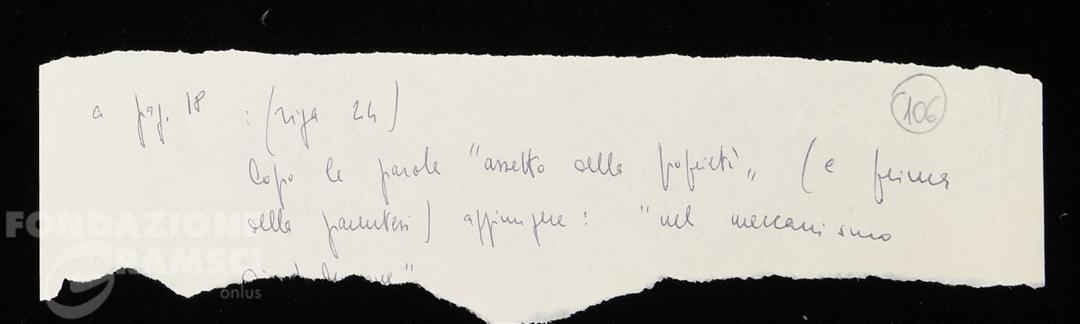 106
a pag. 18 : (riga 24)
dopo le parole "assetto della proprietà„ (e prima
della parentesi) aggiungere: "nel meccanismo
FONDAZIONE
GRAMSCI
onlus